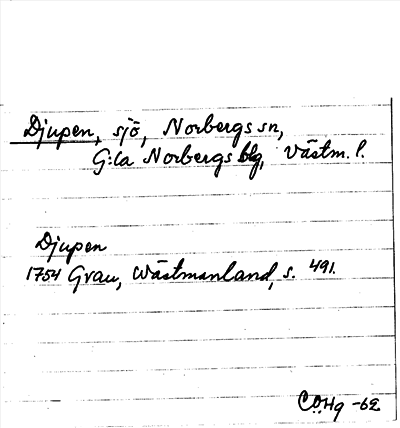 Djupen, sjö, Norbergs sn,
G:la Norbergs blg, Västm. l.
Djupen
1754 Grau, Wästmanland, s. 491.
C.Ö.Hg -62